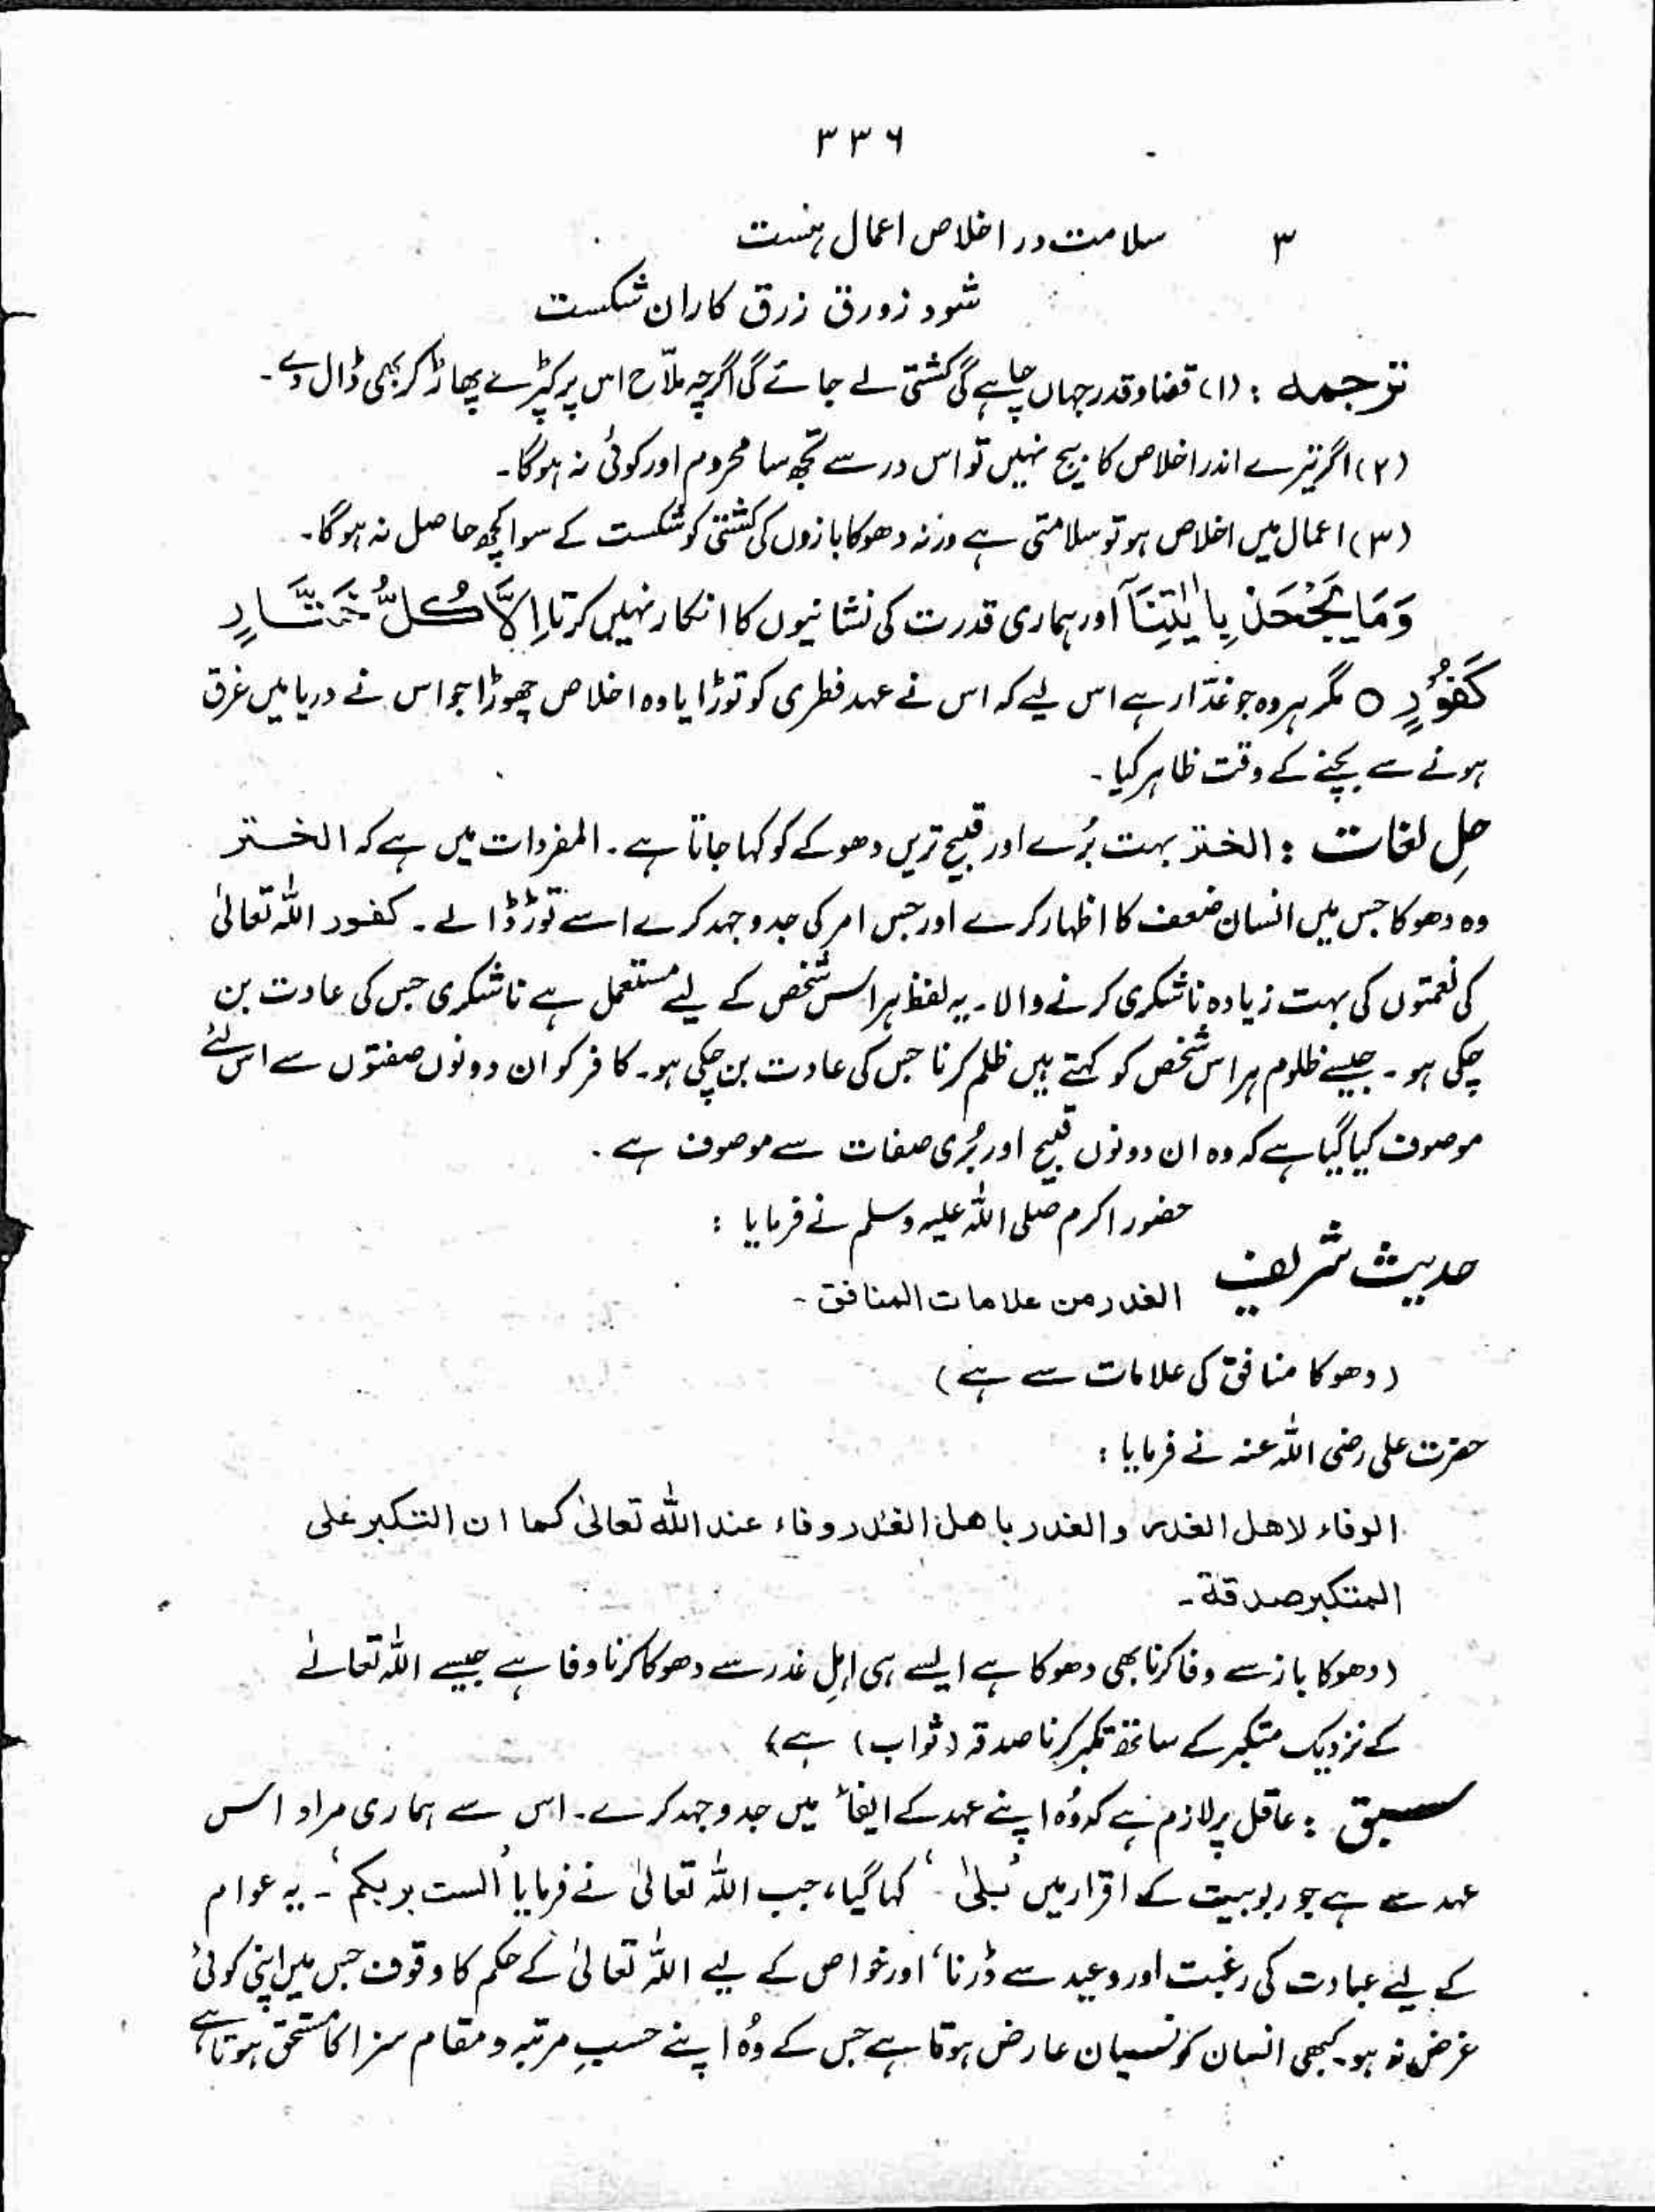 ۳۳۶
۳ سلامت در اخلاص اعمال ہست
شود زورق زرق کاراں شکست
ترجمہ : (۱) قضا و قدر جہاں چاہے گی کشتی لے جائے گی اگرچہ ملّاح اس پر کپڑے پھاڑ کر بھی ڈال دے۔
(۲) اگر تیرے اندر اخلاص کا بیج نہیں تو اس در سے تجھ سا محروم اور کوئی نہ ہوگا۔
(۳) اعمال میں اخلاص ہو تو سلامتی ہے ورنہ دھوکا بازوں کی کشتی کو شکست کے سوا کچھ حاصل نہ ہوگا۔
وَمَا یَجْحَدُ بِاٰیٰتِنَآ اور ہماری قدرت کی نشانیوں کا انکار نہیں کرتا اِلَّا کُلُّ خَتَّارٍ
کَفُوْرٍ ○ مگر ہر وہ جو غدّار ہے اس لیے کہ اس نے عہد فطری کو توڑا یا وہ اخلاص چھوڑا جو اس نے دریا میں غرق
ہونے سے بچنے کے وقت ظاہر کیا۔
حلِ لغات : الختر بہت بُرے اور قبیح ترین دھوکے کو کہا جاتا ہے۔ المفردات میں ہے کہ الختر
وہ دھوکا جس میں انسان ضعف کا اظہار کرے اور جس امر کی جدوجہد کرے اسے توڑ ڈالے۔ کفور اللہ تعالیٰ
کی نعمتوں کی بہت زیادہ ناشکری کرنے والا۔ یہ لفظ ہر اس شخص کے لیے مستعمل ہے ناشکری جس کی عادت بن
چکی ہو۔ جیسے ظلوم ہر اس شخص کو کہتے ہیں ظلم کرنا جس کی عادت بن چکی ہو۔ کافر کو ان دونوں صفتوں سے اس لئے
موصوف کیا گیا ہے کہ وہ ان دونوں قبیح اور بُری صفات سے موصوف ہے۔
حضور اکرم صلی اللہ علیہ وسلم نے فرمایا :
حدیث شریف
الغدر من علامات المنافق۔
(دھوکا منافق کی علامات سے ہے)
حضرت علی رضی اللہ عنہ نے فرمایا :
الوفاء لاھل الغدر والغدر باھل الغدر وفاء عند اللہ تعالیٰ کما ان التکبر علی
المتکبر صدقة۔
(دھوکا باز سے وفا کرنا بھی دھوکا ہے ایسے ہی اہلِ غدر سے دھوکا کرنا وفا ہے جیسے اللہ تعالےٰ
کے نزدیک متکبر کے ساتھ تکبر کرنا صدقہ (ثواب) ہے)
سبق : عاقل پر لازم ہے کہ وُہ اپنے عہد کے ایفاء میں جدوجہد کرے۔ اس سے ہماری مراد اس
عہد سے ہے جو ربوبیت کے اقرار میں ’بلیٰ‘ کہا گیا، جب اللہ تعالیٰ نے فرمایا ’الست بربکم‘۔ یہ عوام
کے لیے عبادت کی رغبت اور وعید سے ڈرنا، اور خواص کے لیے اللہ تعالیٰ کے حکم کا وقوف جس میں اپنی کوئی
غرض نہ ہو۔ کبھی انسان کو نسیان عارض ہوتا ہے جس کے وُہ اپنے حسبِ مرتبہ و مقام سزا کا مستحق ہوتا ہے